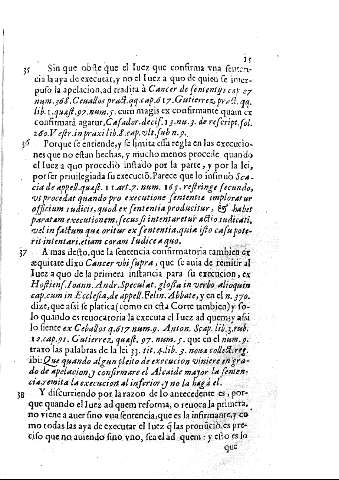 15
35 Sin que obste que el Iuez que confirma vna senten-
cia la aya de executar, y no el Iuez a quo de quien se inter-
puso la apelacion, ad tradita à Cancer de sententys cap 27
num.368. Ceuallos pract. qq. cap. 617. Gutierrez, pract. qq.
lib. 1. quæst. 97. num. 5. cum magis ex confirmante quam ex
confirmata agatur, Casador. decis. 13. nu. 3. de rescript. fol.
260. Vestr. in praxi lib. 8. cap. vlt. sub n. 9.
36 Porque se entiende, y se limita essa regla en las execucio-
nes que no estan hechas, y mucho menos procede quando
el Iuez a quo procediò instado por la parte, y por la lei,
por ser priuilegiada su execuciõ. Parece que lo insinuò Sca-
cia de appell. quæst. 11. art. 7. num. 165. restringe secundo,
vt procedat quando pro executione sententiæ imploratur
officium iudicis, quod ex sententia producitur, & habet
paratam executionem, secus si intentaretur actio iudicati,
vel in factum que oritur ex sententia, quia isto casu pote-
rit intentari, etiam coram Iudice a quo.
37 A mas desto, que la sentencia confirmatoria tambien ex
æquitate dixo Cancer vbi supra, que se auia de remitir al
Iuez a quo de la primera instancia para su execucion, ex
Hostiens. Ioann. Andr. Speculat. glossa in verbo alioquin
cap. cum in Ecclesia, de appell. Felin. Abbate, y en el n. 370.
dize, que assi se platica (como en esta Corte tambien) y so-
lo quando es reuocatoria la executa el Iuez ad quem; y assi
lo siente ex Ceballos q. 617 num. 9. Anton. Scap. lib. 3. rub.
12. cap. 91. Gutierrez, quæst. 95. num. 5. que en el num. 9.
traxo las palabras de la lei 33. tit. 4. lib. 3. nouæ collect. reg.
ibi: Que quando algun pleito de execucion viniere en gra-
do de apelacion, y confirmare el Alcalde mayor la senten-
cia, remita la execucion al inferior, y no la haga èl.
38 Y discurriendo por la razon de lo antecedente es, por-
que quando el Iuez ad quem reforma, o reuoca la primera,
no viene a auer sino vna sentencia, que es la infirmante, y co
mo todas las aya de executar el Iuez q̃ las pronũciò, es pre-
ciso que no auiendo sino vno, sea el ad quem: y esto es lo
que